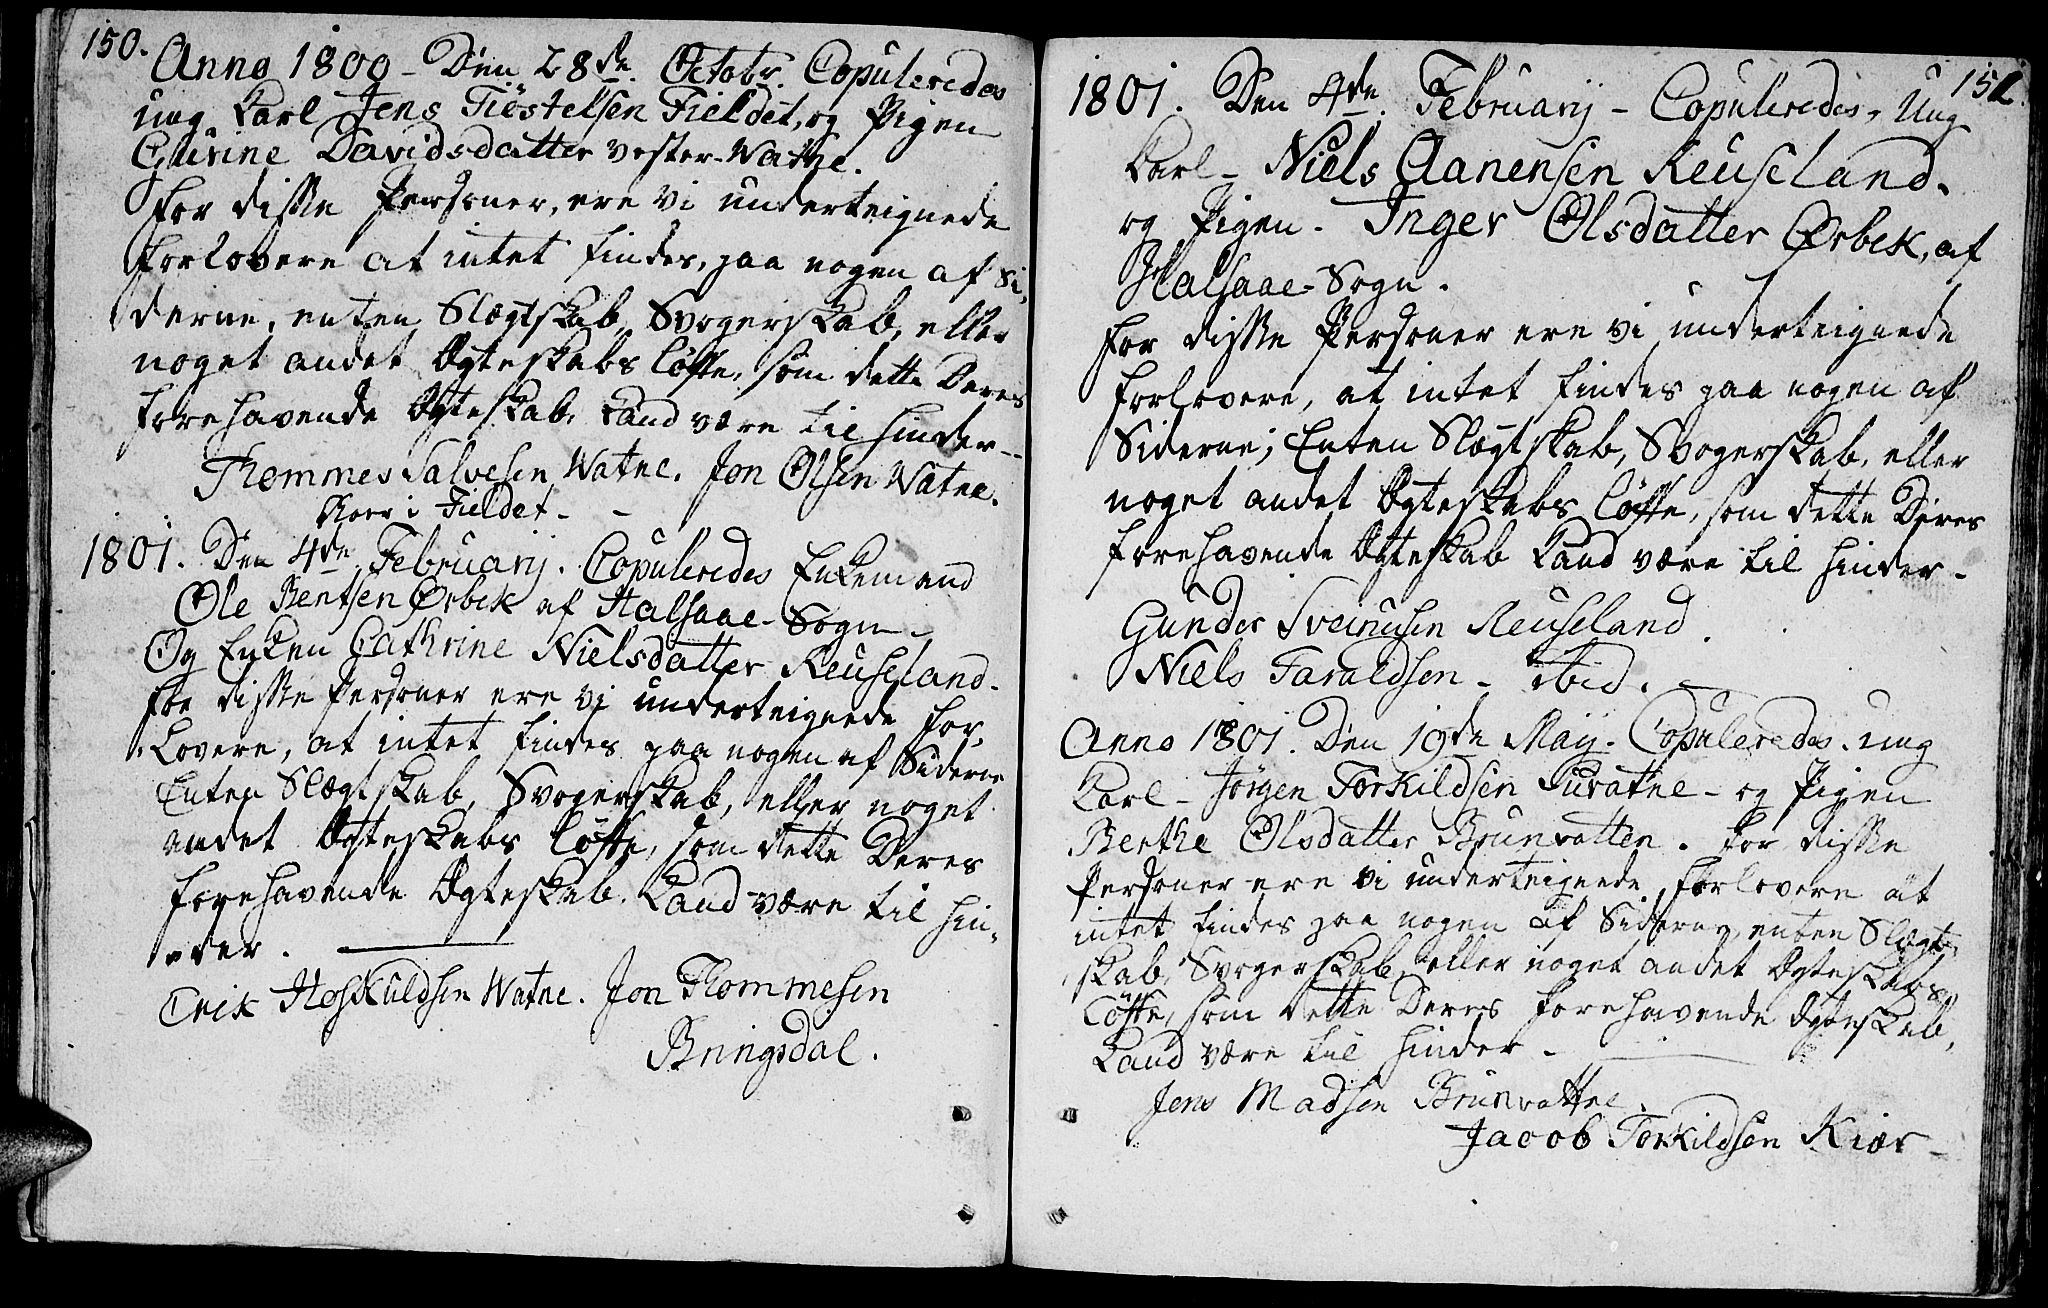 150.
Anno 1800 - Den 28de Octobr. Copuleredes
ung Karl Jens Tiöstelsen Fieldet, og Pigen
Gurine Davidsdatter vester-Watne.
For disse Personer, ere vi underteignede
Forlovere at intet findes, paa nogen af Si-
derne, enten Slægtskab, Svogerskab, eller
noget andet Ægteskabs Løfte, som dette Deres
forehavende Ægteskab, Kand være til hinder --
Thommes Salvesen Watne. Jon Olsen Watne.
i Fieldet -
1801. Den 4de Februarij. Copuleredes Enkemand
Ole Bentsen Ørbek af Halsaae-Sogn -
Og Enken Cathrine Nielsdatter Reuseland -
For disse Personer ere vi underteignede For-
lovere, at intet findes paa nogen af Siderne
Enten Slægtskab, Svogerskab, eller noget
andet Ægteskabs Løfte, som dette Deres
forehavende Ægteskab. Kand være til hin-
der.
Erik Hoskuldsen Watne. Jon Thommesen
Bringsdal.
151.
1801. Den 4de Februarij - Copuleredes, Ung
Karl - Niels Aanensen Reuseland.
og Pigen - Inger Olsdatter Ørbek, af
Halsaae-Sogn.
For disse Personer ere vi underteignede
Forlovere, at intet findes paa nogen af
Siderne; Enten Slægtskab, Svogerskab, eller
noget andet Ægteskabs Løfte, som dette Deres
forehavende Ægteskab Kand være til hinder -
Gunder Sveinusen Reuseland.
Niels Taraldsen - ibid. -
Anno 1801. Den 19de Maij. Copuleredes. ung
Karl - Jørgen Torkildsen - og Pigen
Berthe Olsdatter Brunvatten. For disse
Personer ere vi underteignede Forlovere at
intet findes paa nogen af Siderne, enten Slægt-
skab, Svogerskab, eller noget andet Ægteskabs
Løfte, som dette Deres forehavende Ægteskab,
Kand være til hinder -
Jens Madsen Brunvattne.
Jacob Torkildsen Kiær -